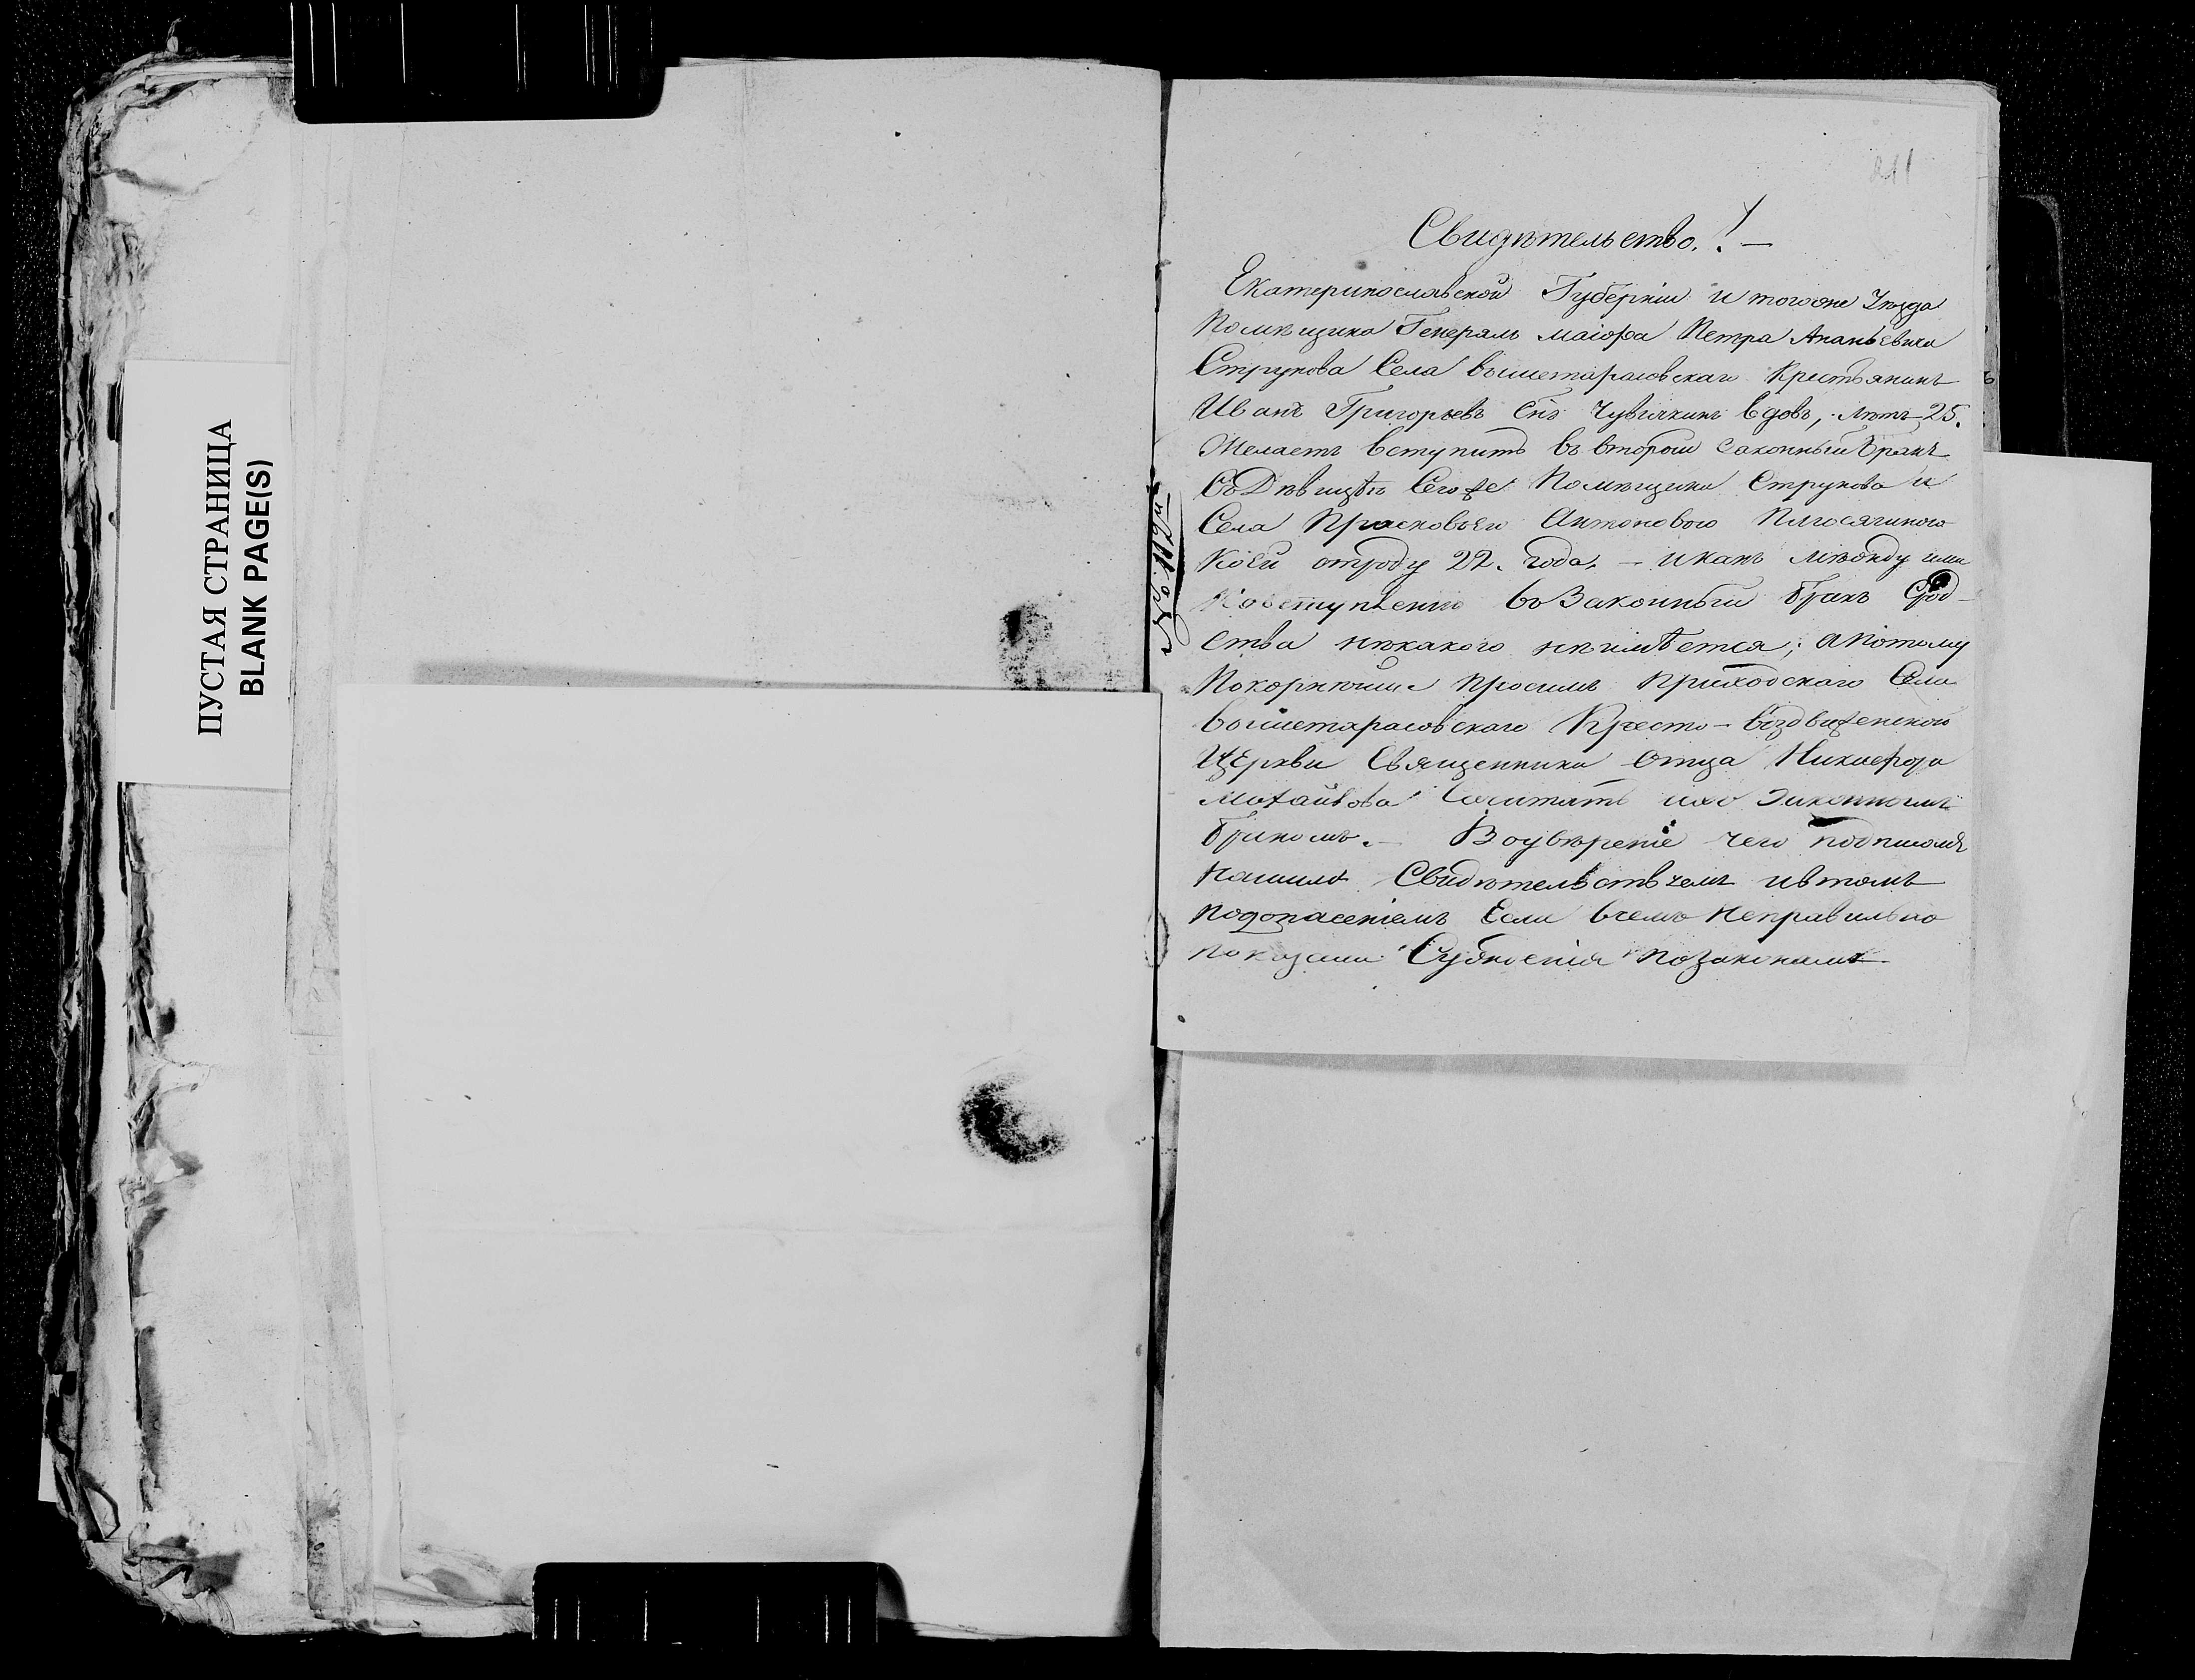 ПУСТАЯ СТРАНИЦА
BLANK PAGE(S)
211
Свидѣтельство.! —
Екатеринославской Губерніи и тогоже Уѣзда
Помѣщика Генералъ маіора Петра Ананьевича
Струкова Села вышетарасовскаго Крестьянинъ
Иванъ Григорьевъ Снъ вдовъ, лѣтъ 25.
Желаетъ вступить въ второй законный бракъ
Со Дѣвицѣю Сегоже Помѣщика Струкова и
Села Прасковьею Антоновою
Коей отроду 22. года. — и какъ между ими
Ковступленію въ Законный бракъ Срод-
ства нѣкакого неимѣется; а потому
Покорнѣйше просимъ приходскаго Села
вышетарасовскаго Кресто-воздвиженской
Церкви Священника Отца Никифора
Сочитать ихъ Законнымъ
бракомъ. — Воувѣреніе чего подписомъ
нашимъ Свидѣтельствуемъ ивтомъ
подопасеніемъ Если всемъ неправильно
показали Сужденія позаконамъ.